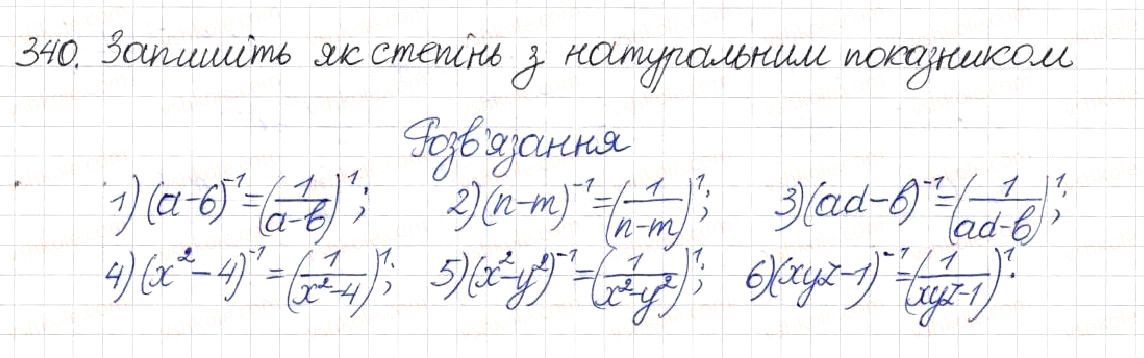 340. Запишіть як степінь з натуральним показником
Розв'язання
1) (a-b)⁻¹=(1/(a-b))¹; 2) (n-m)⁻¹=(1/(n-m))¹; 3) (ad-b)⁻¹=(1/(ad-b))¹;
4) (x²-4)⁻¹=(1/(x²-4))¹; 5) (x²-y²)⁻¹=(1/(x²-y²))¹; 6) (xyz-1)⁻¹=(1/(xyz-1))¹.